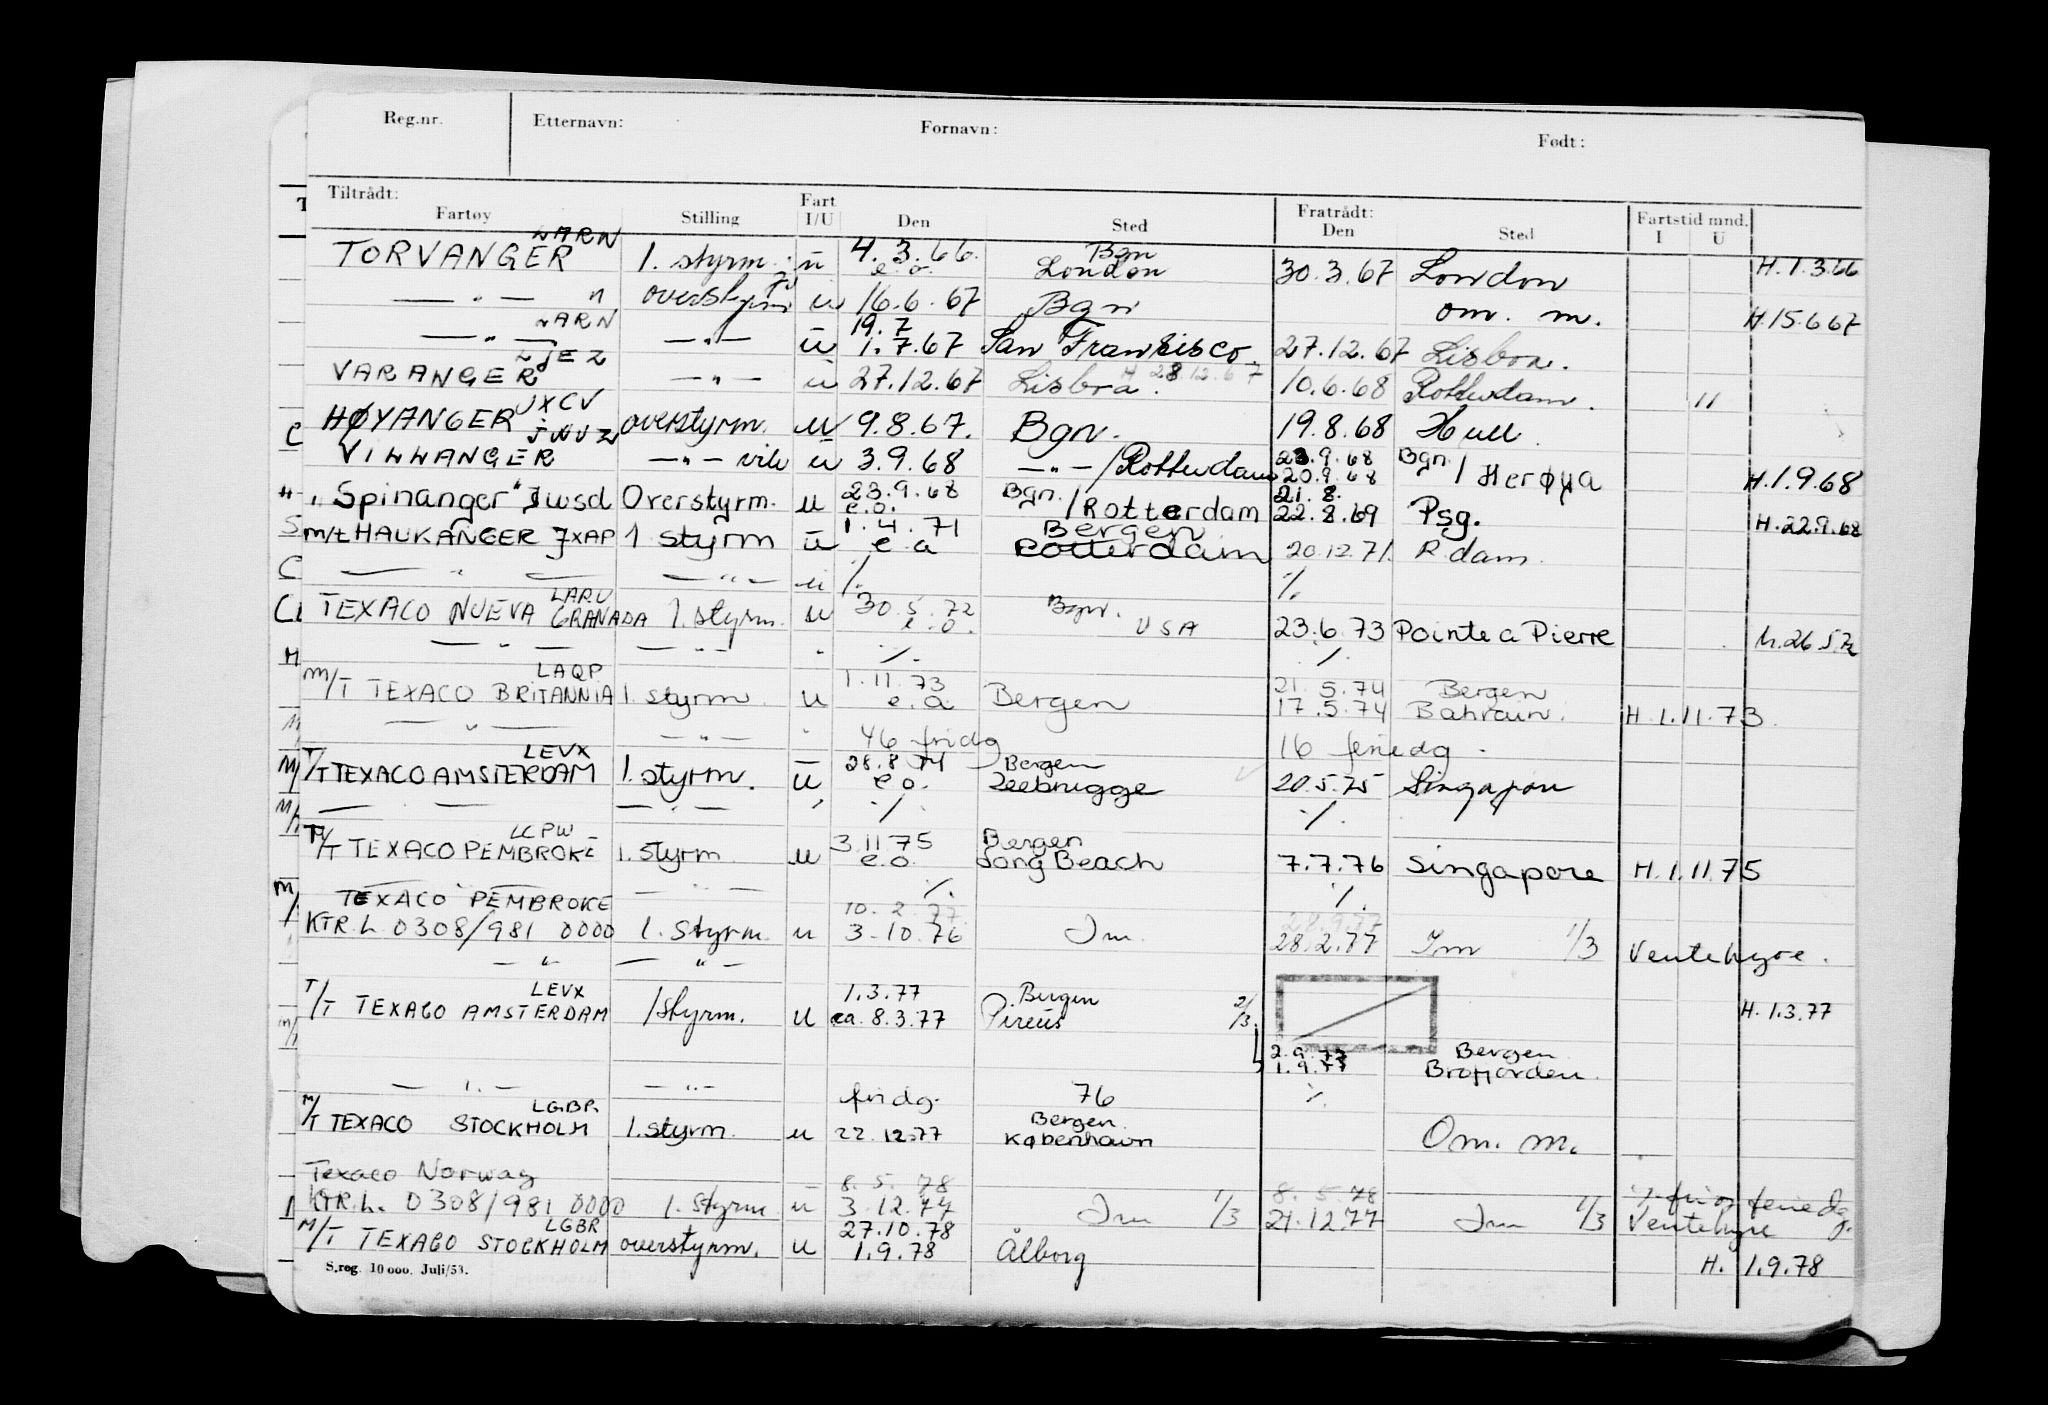 Reg.nr. Etternavn: Fornavn: Født:
Tiltrådt: Fratrådt:
Fartøy Stilling Fart I/U Den Sted Den Sted Fartstid mnd. I U
TORVANGER LARN 1. styrm. u 4.3.66. e.o. Bgn London 30.3.67 London H.1.3.66
— " — " overstyrm u 16.6.67 Bgn om. m. H.15.6.67
— " — LARN — " — u 19.7 1.7.67 San Fransisco. 27.12.67 Lisbon.
VARANGER LJEZ — " — u 27.12.67 Lisboa. H 28.12.67 10.6.68 Rotterdam. "
HØYANGER JXCV overstyrm. u 9.8.67. Bgn. 19.8.68 Hull.
VILLANGER JWUZ — " — vik u 3.9.68 — " — / Rotterdam 23.9.68 20.9.68 Bgn / Herøya H.1.9.68
"Spinanger" Jwsd Overstyrm. u 23.9.68 e.o. Bgn. / Rotterdam 21.8. 22.8.69 Psg. H.22.9.68
m/t HAUKANGER JXAP 1 styrm u 1.4.71 e.a Bergen Rotterdam 20.12.71. R.dam.
— " — — " — u ./. ./.
TEXACO NUEVA GRANADA LAPU 1. styrm. u 30.5.72 e.o. Bgn. USA 23.6.73 Pointe a Pierre h.26.5.72
— " — — " — " ./. ./.
M/T TEXACO BRITANNIA LAQP 1. styrm. u 1.11.73 e.a. Bergen 21.5.74 17.5.74 Bergen Bahrain. H.1.11.73.
— " — — " — " 46 fridg 16 feriedg.
T/T TEXACO AMSTERDAM LEVX 1. styrm. u 28.8.74 e.o. Bergen Zeebrugge 20.5.75 Singapore
— — — " — ' ./. ./.
T/T TEXACO PEMBROKE LCPW 1. styrm u 3.11.75 e.o. Bergen Long Beach 7.7.76 Singapore H.1.11.75
— " — — " — ./. ./.
TEXACO PEMBROKE 10.2.77. 28.9.77
KTR.L. 0308/981 0000 1. Styrm. u 3.10.76 Im. 28.2.77 Im 1/3 Ventehyre.
— " — — " —
T/T TEXACO AMSTERDAM LEVX 1styrm. u 1.3.77 ca. 8.3.77 Bergen Pireus 2/3. H.1.3.77
2.9.77 Bergen
1.9.77 Brofjorden.
— " — — " — fridg. 76 ./.
M/T TEXACO STOCKHOLM LGBR 1. styrm. u 22.12.77 Bergen. København Om. m.
Texaco Norway 8.5.78 8.5.78
KTR.L. 0308/981 0000 1. Styrm u 3.12.77 Im 1/3 21.12.77 Im 1/3 Ventehyre
M/T TEXACO STOCKHOLM LGBR overstyrm. u 27.10.78 1.9.78 Ålborg H. 1.9.78
S.reg. 10 000. Juli/53.